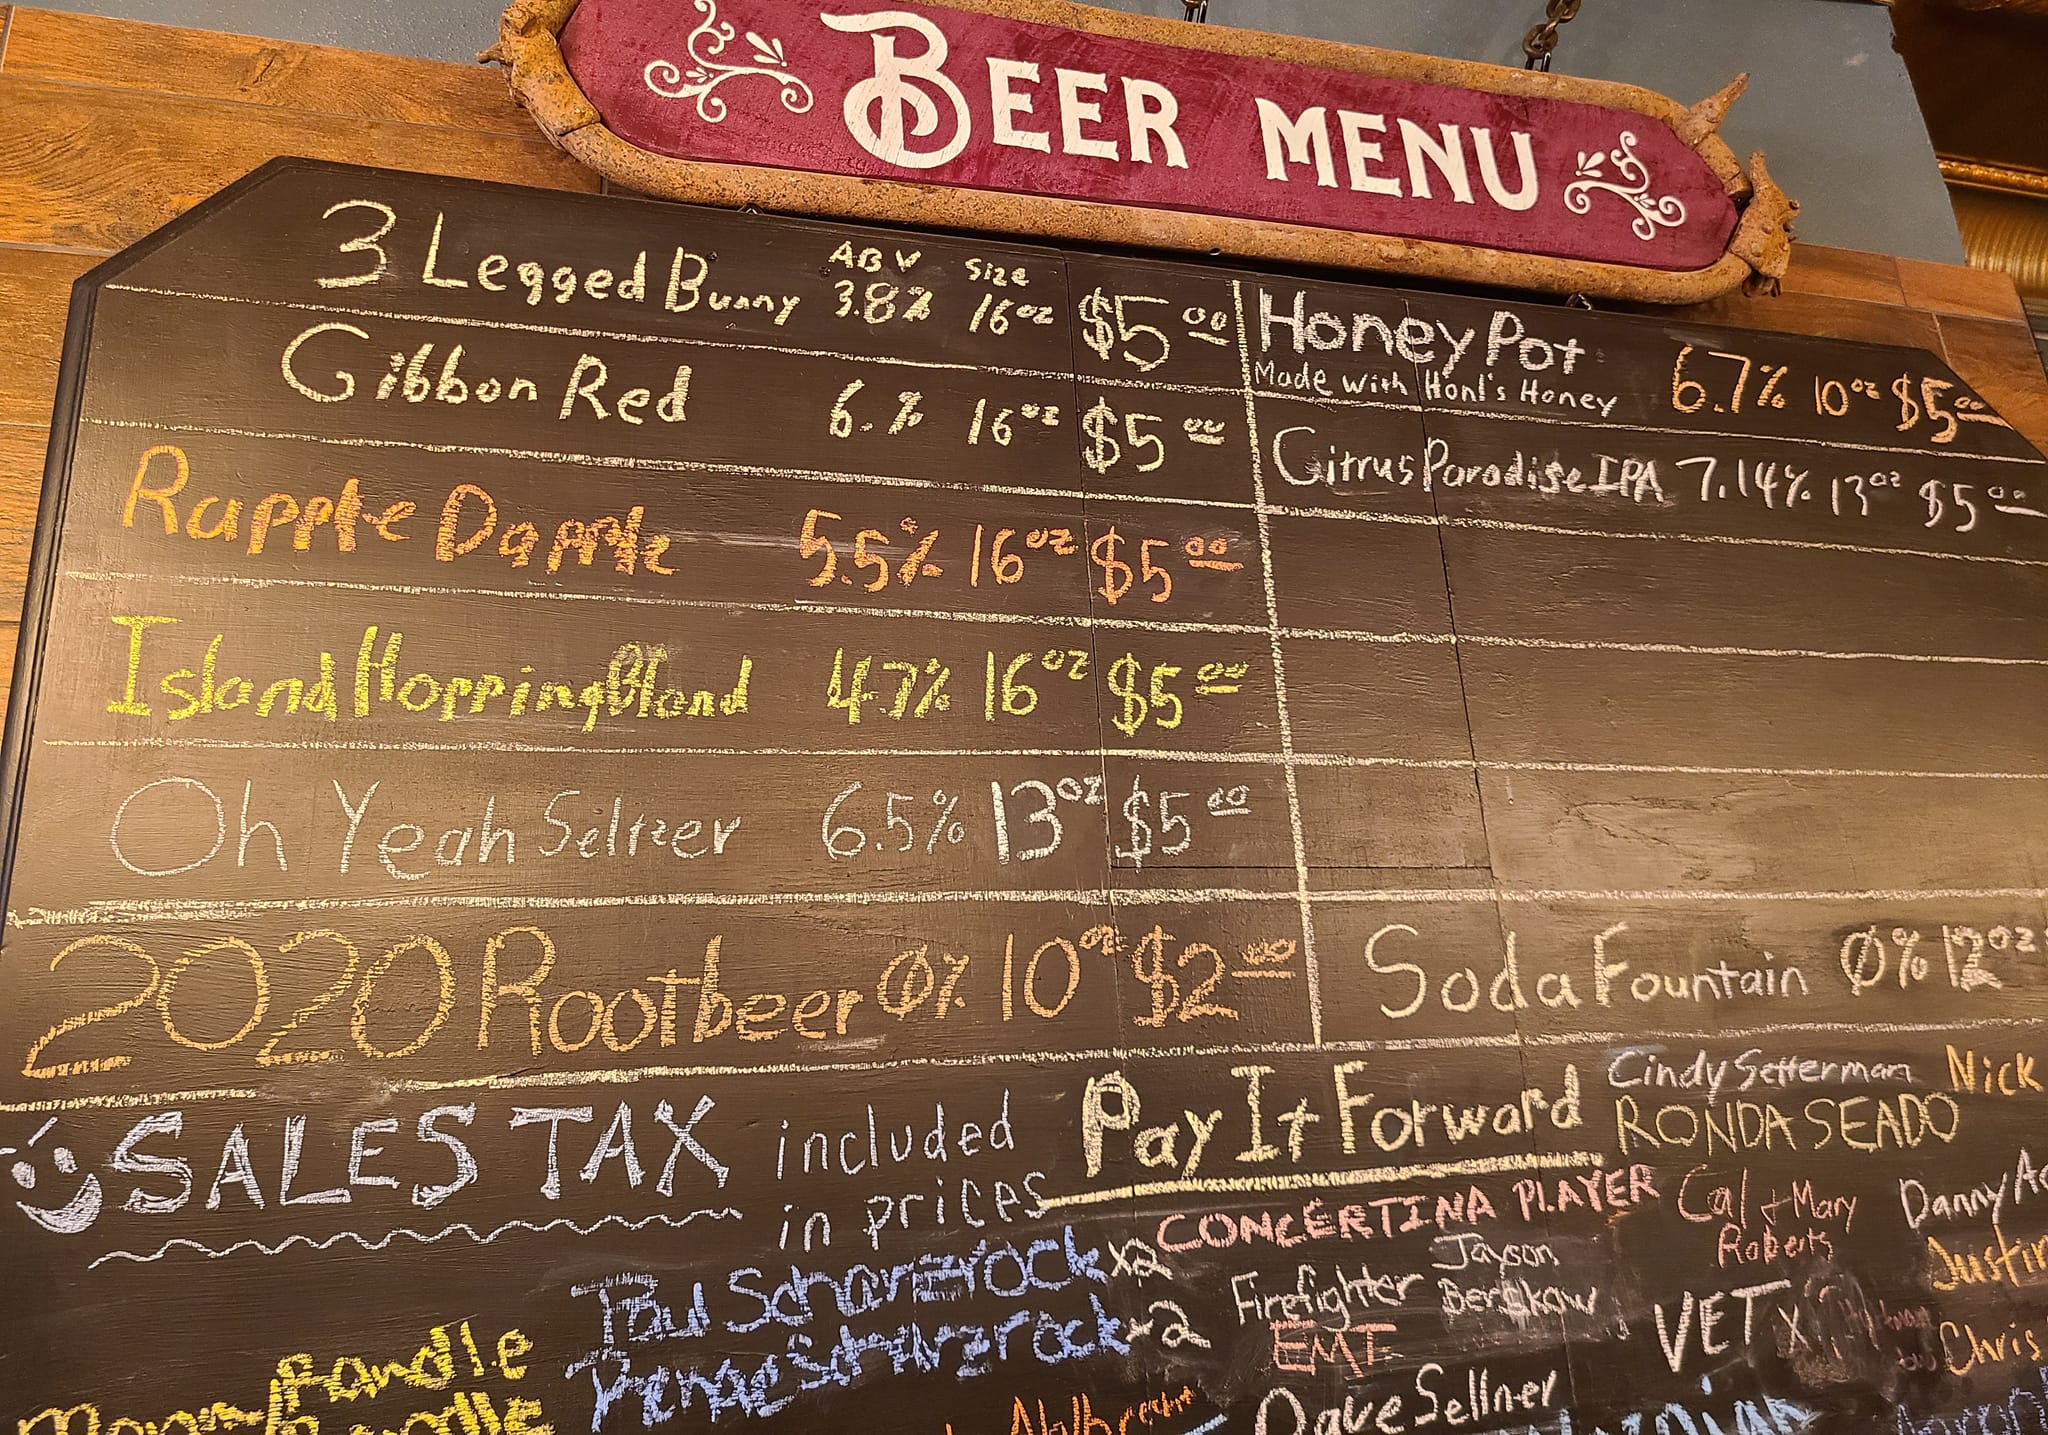 BEER MENU
ABV Size
3 Legged Bunny 3.8% 16oz $5.00
Gibbon Red 6.% 16oz $5.00
Rapple Dapple 5.5% 16oz $5.00
Island Hopping Blond 4.7% 16oz $5.00
Oh Yeah Seltzer 6.5% 13oz $5.00
2020 Rootbeer 0% 10oz $2.00
Honey Pot 6.7% 10oz $5.00
Made with Honl's Honey
Citrus Paradise IPA 7.14% 13oz $5.00
Soda Fountain 0% 12oz
SALES TAX included
in prices
Pay It Forward
Cindy Setterman Nick
RONDA SEADO
CONCERTINA PLAYER
Cal + Mary
Roberts
Danny
Justin
Paul Schanzrock x2
Schanzrock x2
Firefighter
EMT
Jayson
VET x
Chris
Dave Sellner